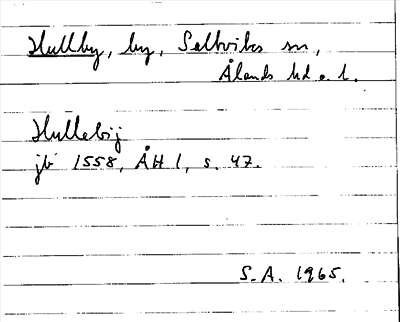 Hullby, by, Saltviks sn,
Ålands hd o. l.
Hullebij
jb 1558, ÅH 1, s. 47.
S.A. 1965.